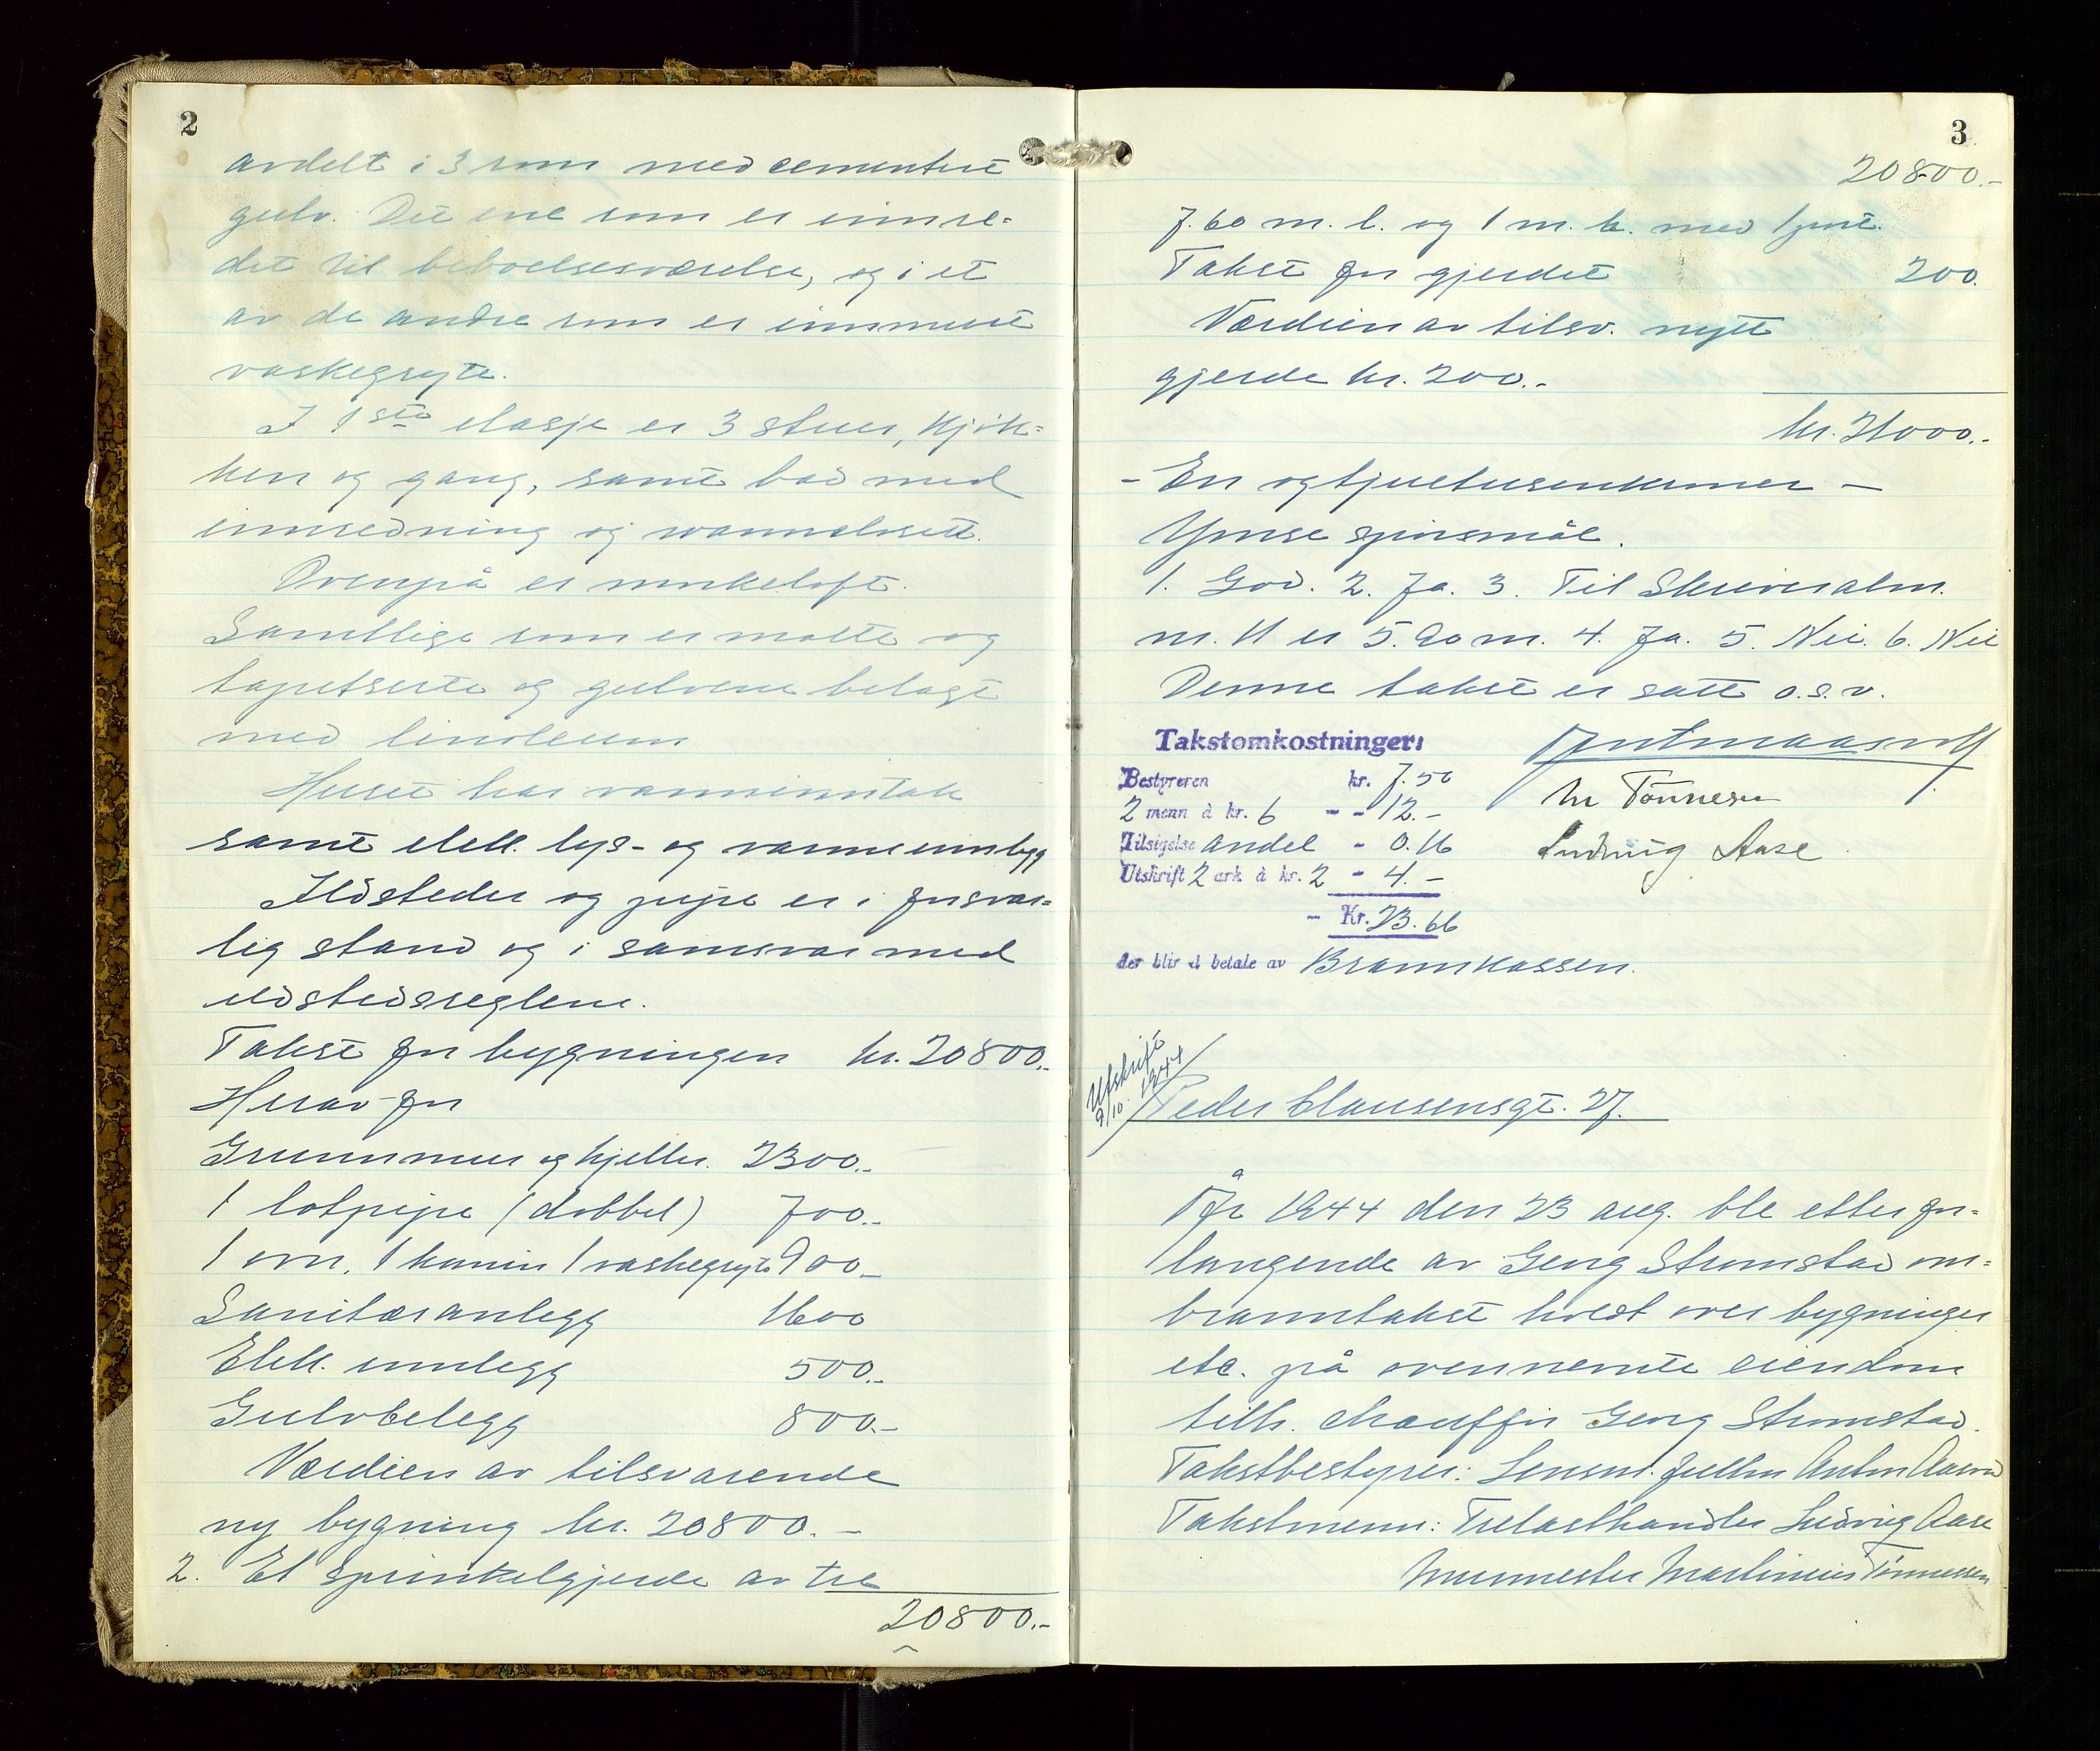 2
avdelt i 3 rom med cementert
gulv. Det ene rom er innre=
det til beboelsesværelse, og i et
av de andre rom er innmurt
vaskegryte.
I 1ste etasje er 3 stuer, kjøk=
ken og gang, samt bad med
innredning og vannclosett.
Ovenpå er mørkeloft.
Samtlige rom er malte og
tapetserte og gulvene belagt
med linoleum
Huset har vanninntak
samt elek. lys- og varmeinnlegg
Ildsteder og pipe er i forsvar=
lig stand og i samsvar med
ildstedsreglene.
Takst for bygningen kr. 20800.-
Herav for
Grunnmur og kjeller. 2300.-
1 løtpipe (dobbel) 700.-
1 ovn, 1 kamin 1 vaskegryte 900.-
Sanitæranlegg 1600
Elek. innlegg 500.-
Gulvbelegg 800.-
Verdien av tilsvarende
ny bygning kr. 20800.-
2. Et sprinkelgjerde av tre
20800.-
3
20800.-
7.60 m. l. og 1 m. h. med 1 port.
Takst for gjerdet 200.
Verdien av tilsv. nytt
gjerde kr. 200.-
kr. 21000.-
- En og tjuetusenkroner -
Ymse spørsmål.
1. God. 2. Ja. 3. Til Skriveralm.
nr. 11 er 5.90 m. 4. Ja. 5. Nei. 6. Nei
Denne takst er satt o.s.v.
Takstomkostninger:
Bestyreren kr. 7.50
M Tønnesen
2 menn à kr. 6 - - 12.-
Ludvig Aase
Tilsigelse andel - 0.16
Utskrift 2 ark à kr. 2 - 4.-
- Kr. 23.66
der blir å betale av Brannkassen.
Utskrift
9/10. 1944
Peder Clausensgt. 27.
År 1944 den 23 aug. ble etter for=
langende av Georg Strømstad om=
branntakst holdt over bygninger
etc. på ovennemte eiendom
tilh. chauffør Georg Strømstad.
Takstbestyrer: Lensm. fullm Anton Aasvd
Takstmenn: Trelasthandler Ludvig Aase
Murmester Martinius Tønnessen